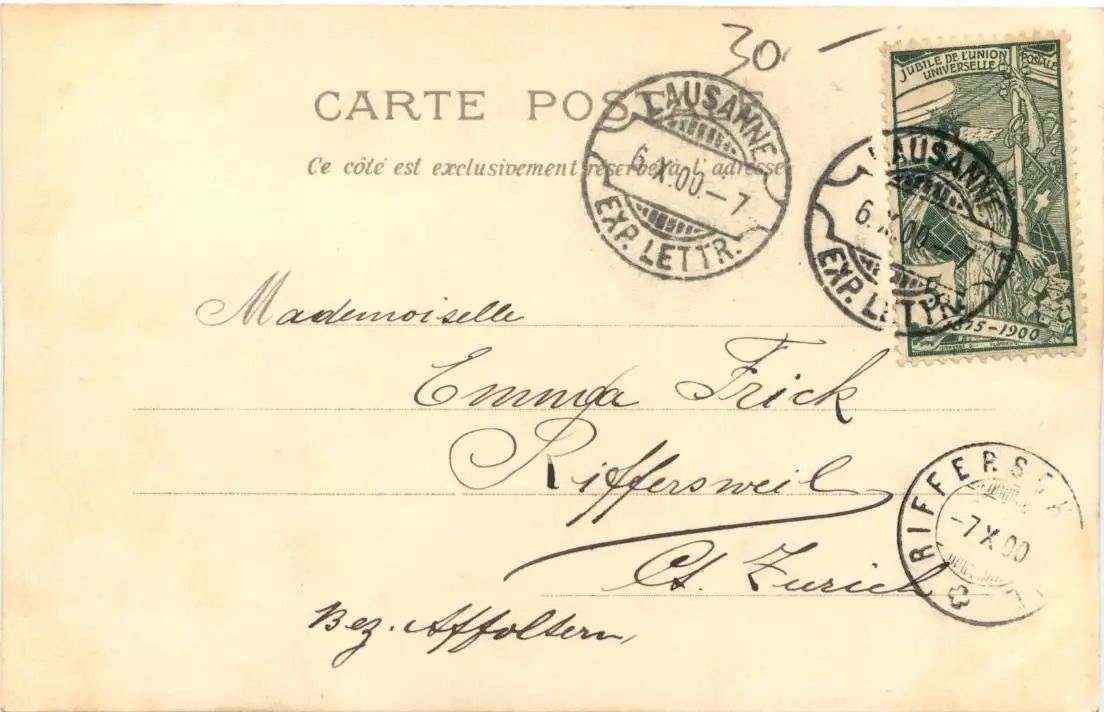 30 —
JUBILÉ DE L'UNION POSTALE
UNIVERSELLE
CARTE POSTALE
Ce côté est exclusivement réservé à l'adresse
LAUSANNE
6.X.00–7
EXP. LETTR.
LAUSANNE
6.X.00–7
EXP. LETTR.
5
1875–1900
Mademoiselle
Emma Frick
Riffersweil
Ct. Zurich
Bez. Affoltern
RIFFERSW
–7.X.00